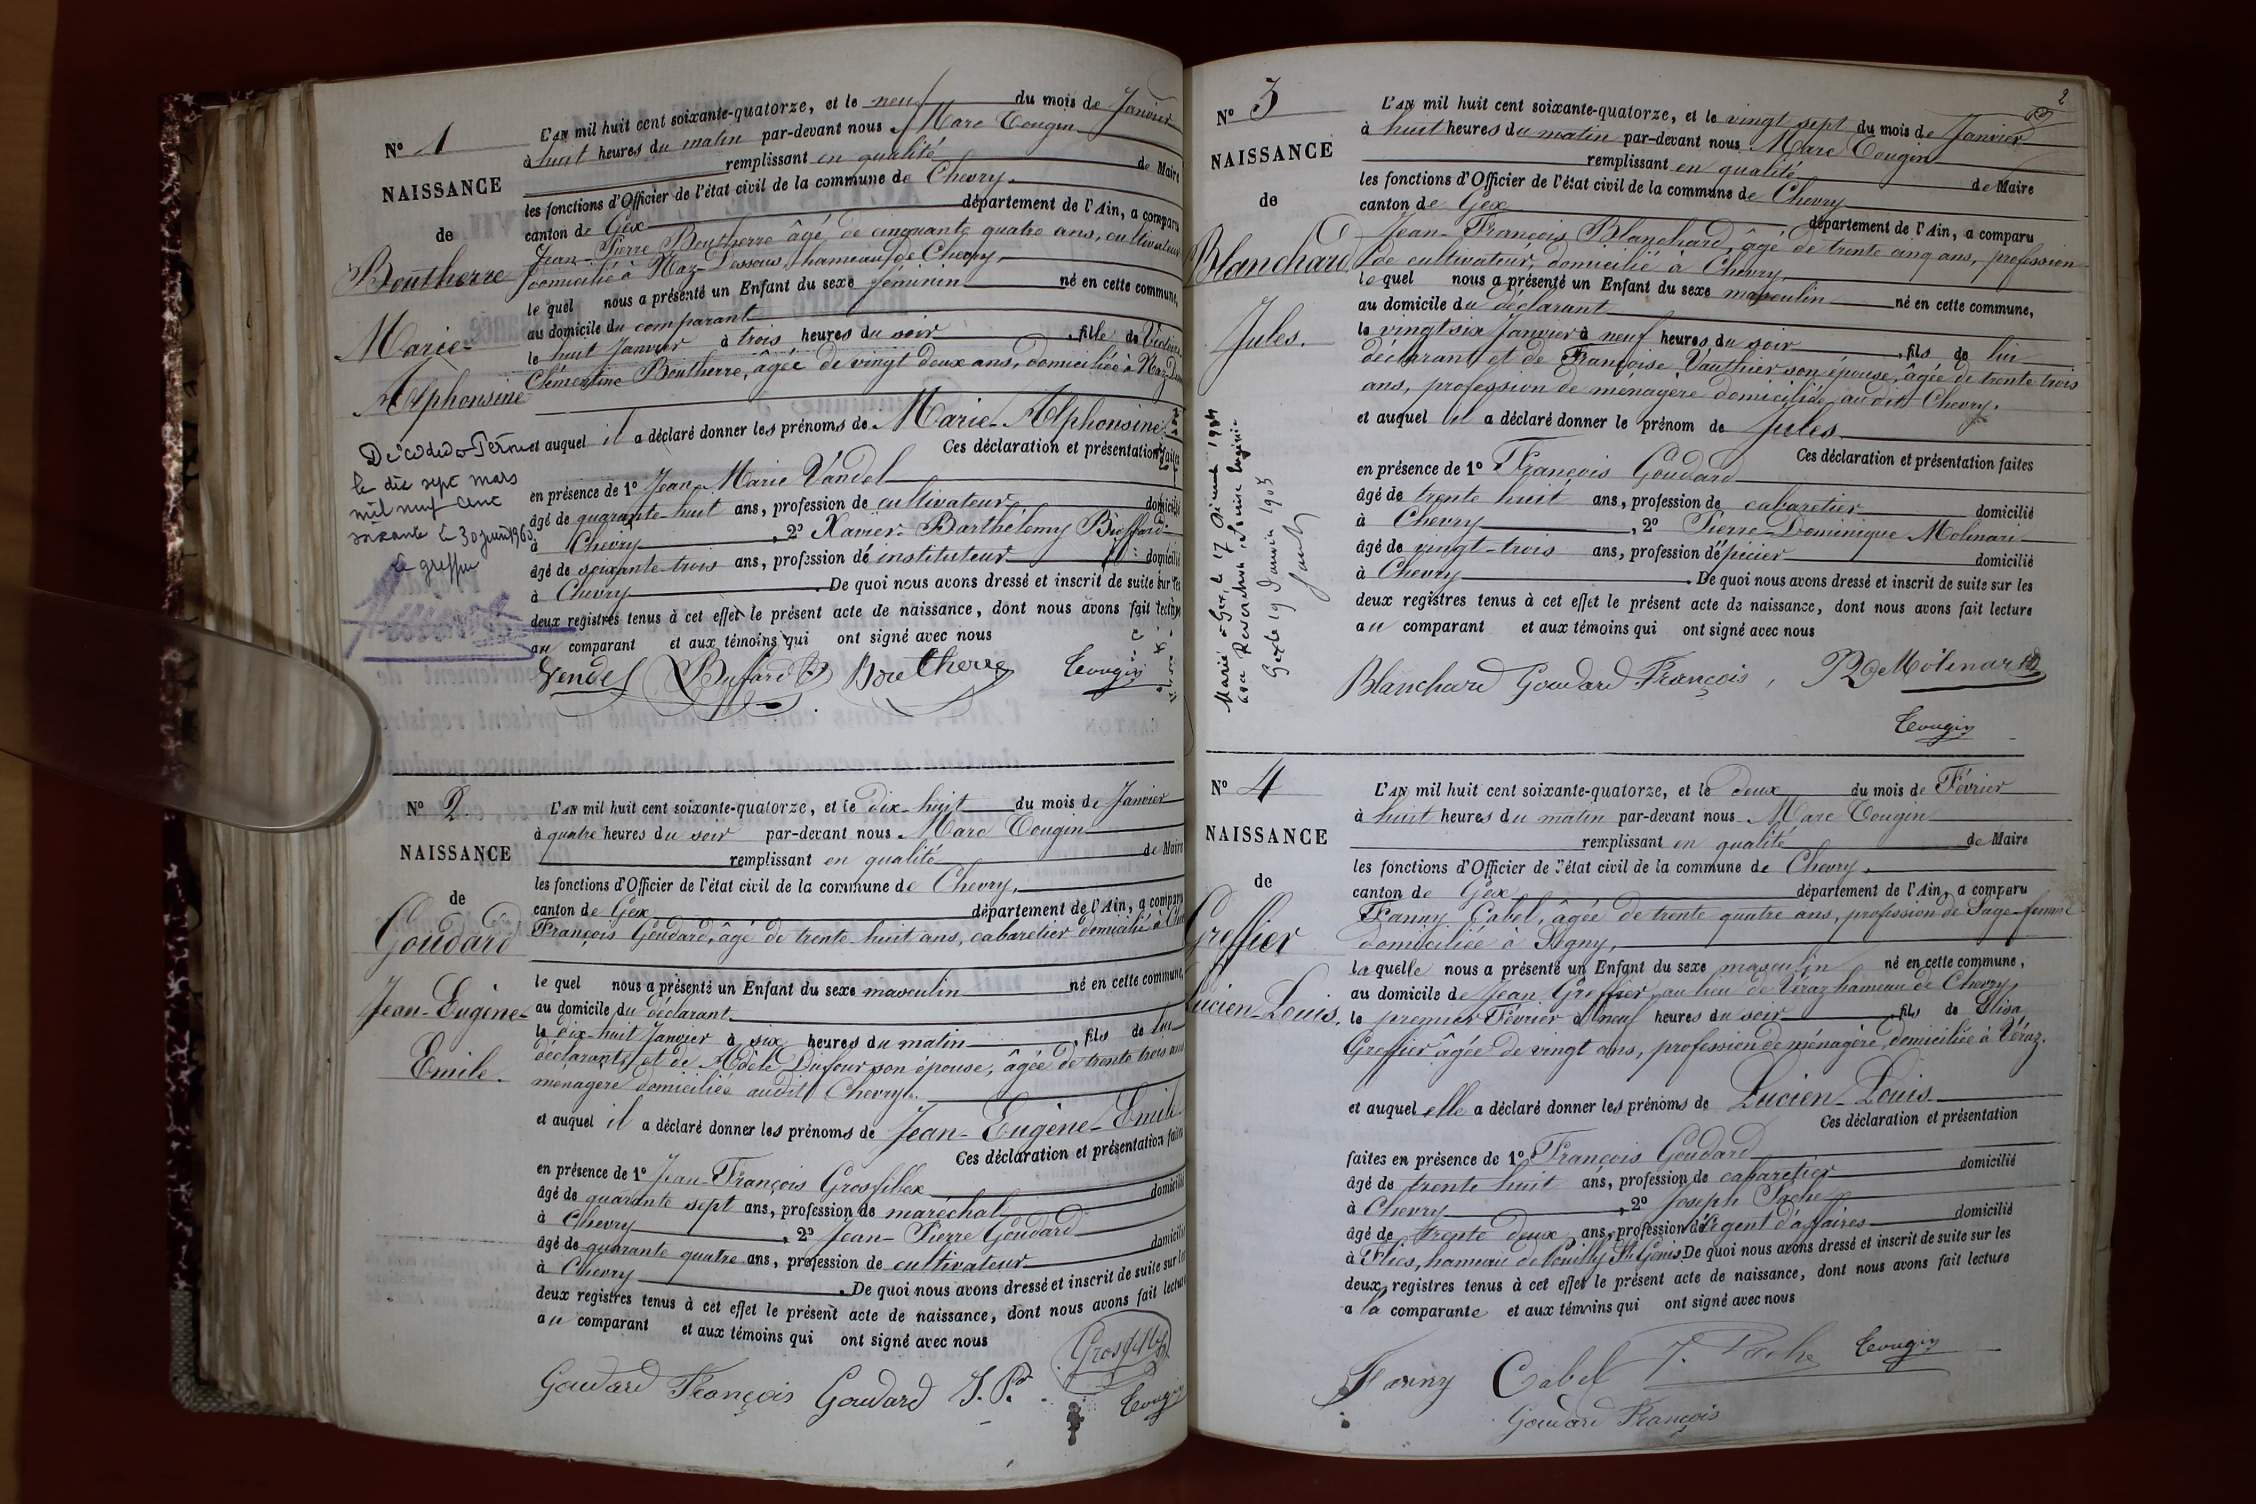 Nº 1
NAISSANCE
de
Boutherre
Marie-
Alphonsine
L'AN mil huit cent soixante-quatorze, et le neuf du mois de Janvier
à huit heures du matin par-devant nous Marc Tougin
remplissant en qualité de Maire
les fonctions d'Officier de l'état civil de la commune de Chevry.
canton de Gex département de l'Ain, a comparu
Jean-Pierre Boutherre âgé de cinquante quatre ans, cultivateur
domicilié à Naz-Dessous, hameau de Chevry
le quel nous a présenté un Enfant du sexe féminin né en cette commune,
au domicile du comparant
le huit Janvier à trois heures du soir, fille de Victoire
Clémentine Boutherre, âgée de vingt deux ans, domiciliée à Naz-
et auquel il a déclaré donner les prénoms de Marie-Alphonsine.
Ces déclaration et présentation faites
en présence de 1º Jean-Marie Vandel
âgé de quarante-huit ans, profession de cultivateur domicilié
à Chevry, 2º Xavier-Barthélemy
âgé de soixante-trois ans, profession de instituteur domicilié
à Chevry. De quoi nous avons dressé et inscrit de suite sur les
deux registres tenus à cet effet le présent acte de naissance, dont nous avons fait lecture
au comparant et aux témoins qui ont signé avec nous
Boutherre Tougin
le dix sept mars
mil neuf cent
soixante le 30 juin 1960
Le greffier
Nº 2.
NAISSANCE
de
Goudard
Jean-Eugène-
Emile.
L'AN mil huit cent soixante-quatorze, et le dix-huit du mois de Janvier
à quatre heures du soir par-devant nous Marc Tougin
remplissant en qualité de Maire
les fonctions d'Officier de l'état civil de la commune de Chevry.
canton de Gex département de l'Ain, a comparu
François Goudard, âgé de trente-huit ans, cabaretier domicilié à
le quel nous a présenté un Enfant du sexe masculin né en cette commune,
au domicile du déclarant
le dix-huit Janvier à six heures du matin, fils de lui
déclarant, et de Adèle Dufour son épouse, âgée de trente trois ans
ménagère domiciliés audit Chevry.
et auquel il a déclaré donner les prénoms de Jean-Eugène-Emile
Ces déclaration et présentation faites
en présence de 1º Jean-François Grosfillex
âgé de quarante sept ans, profession de maréchal domicilié
à Chevry, 2º Jean-Pierre Goudard
âgé de quarante quatre ans, profession de cultivateur domicilié
à Chevry. De quoi nous avons dressé et inscrit de suite sur les
deux registres tenus à cet effet le présent acte de naissance, dont nous avons fait lecture
au comparant et aux témoins qui ont signé avec nous
Goudard François Goudard J. P. Tougin
2
Nº 3
NAISSANCE
de
Blanchard
Jules.
L'AN mil huit cent soixante-quatorze, et le vingt sept du mois de Janvier
à huit heures du matin par-devant nous Marc Tougin
remplissant en qualité de Maire
les fonctions d'Officier de l'état civil de la commune de Chevry
canton de Gex département de l'Ain, a comparu
Jean-François Blanchard, âgé de trente cinq ans, profession
de cultivateur, domicilié à Chevry
le quel nous a présenté un Enfant du sexe masculin né en cette commune,
au domicile du déclarant
le vingt six Janvier à neuf heures du soir, fils de lui
déclarant et de Françoise Vauthier son épouse, âgée de trente trois
ans, profession de ménagère domiciliés audit Chevry.
et auquel il a déclaré donner le prénom de Jules.
Ces déclaration et présentation faites
en présence de 1º François Goudard
âgé de trente huit ans, profession de cabaretier domicilié
à Chevry, 2º Pierre-Dominique Molinari
âgé de vingt-trois ans, profession d'épicier domicilié
à Chevry. De quoi nous avons dressé et inscrit de suite sur les
deux registres tenus à cet effet le présent acte de naissance, dont nous avons fait lecture
au comparant et aux témoins qui ont signé avec nous
Blanchard Goudard François,
Tougin
Marié à Gex, le 17
avec Louise Eugénie
Gex le 19 Janvier 1905
Nº 4
NAISSANCE
de
Greffier
Lucien-Louis.
L'AN mil huit cent soixante-quatorze, et le deux du mois de Février
à huit heures du matin par-devant nous Marc Tougin
remplissant en qualité de Maire
les fonctions d'Officier de l'état civil de la commune de Chevry.
canton de Gex département de l'Ain, a comparu
Fanny Cabel, âgée de trente quatre ans, profession de Sage-femme
domiciliée à Segny,
la quelle nous a présenté un Enfant du sexe masculin né en cette commune,
au domicile de Jean Greffier, au lieu de Véraz hameau de Chevry,
le premier Février à neuf heures du soir, fils de Elisa
Greffier âgée de vingt ans, profession de ménagère, domiciliée à Véraz.
et auquel elle a déclaré donner les prénoms de Lucien-Louis
Ces déclaration et présentation
faites en présence de 1º François Goudard
âgé de trente huit ans, profession de cabaretier domicilié
à Chevry, 2º Joseph
âgé de trente deux ans, profession d'agent d'affaires domicilié
à Flies, hameau de Pouilly St Genis. De quoi nous avons dressé et inscrit de suite sur les
deux registres tenus à cet effet le présent acte de naissance, dont nous avons fait lecture
a la comparante et aux témoins qui ont signé avec nous
Fanny Cabel Tougin
Goudard François